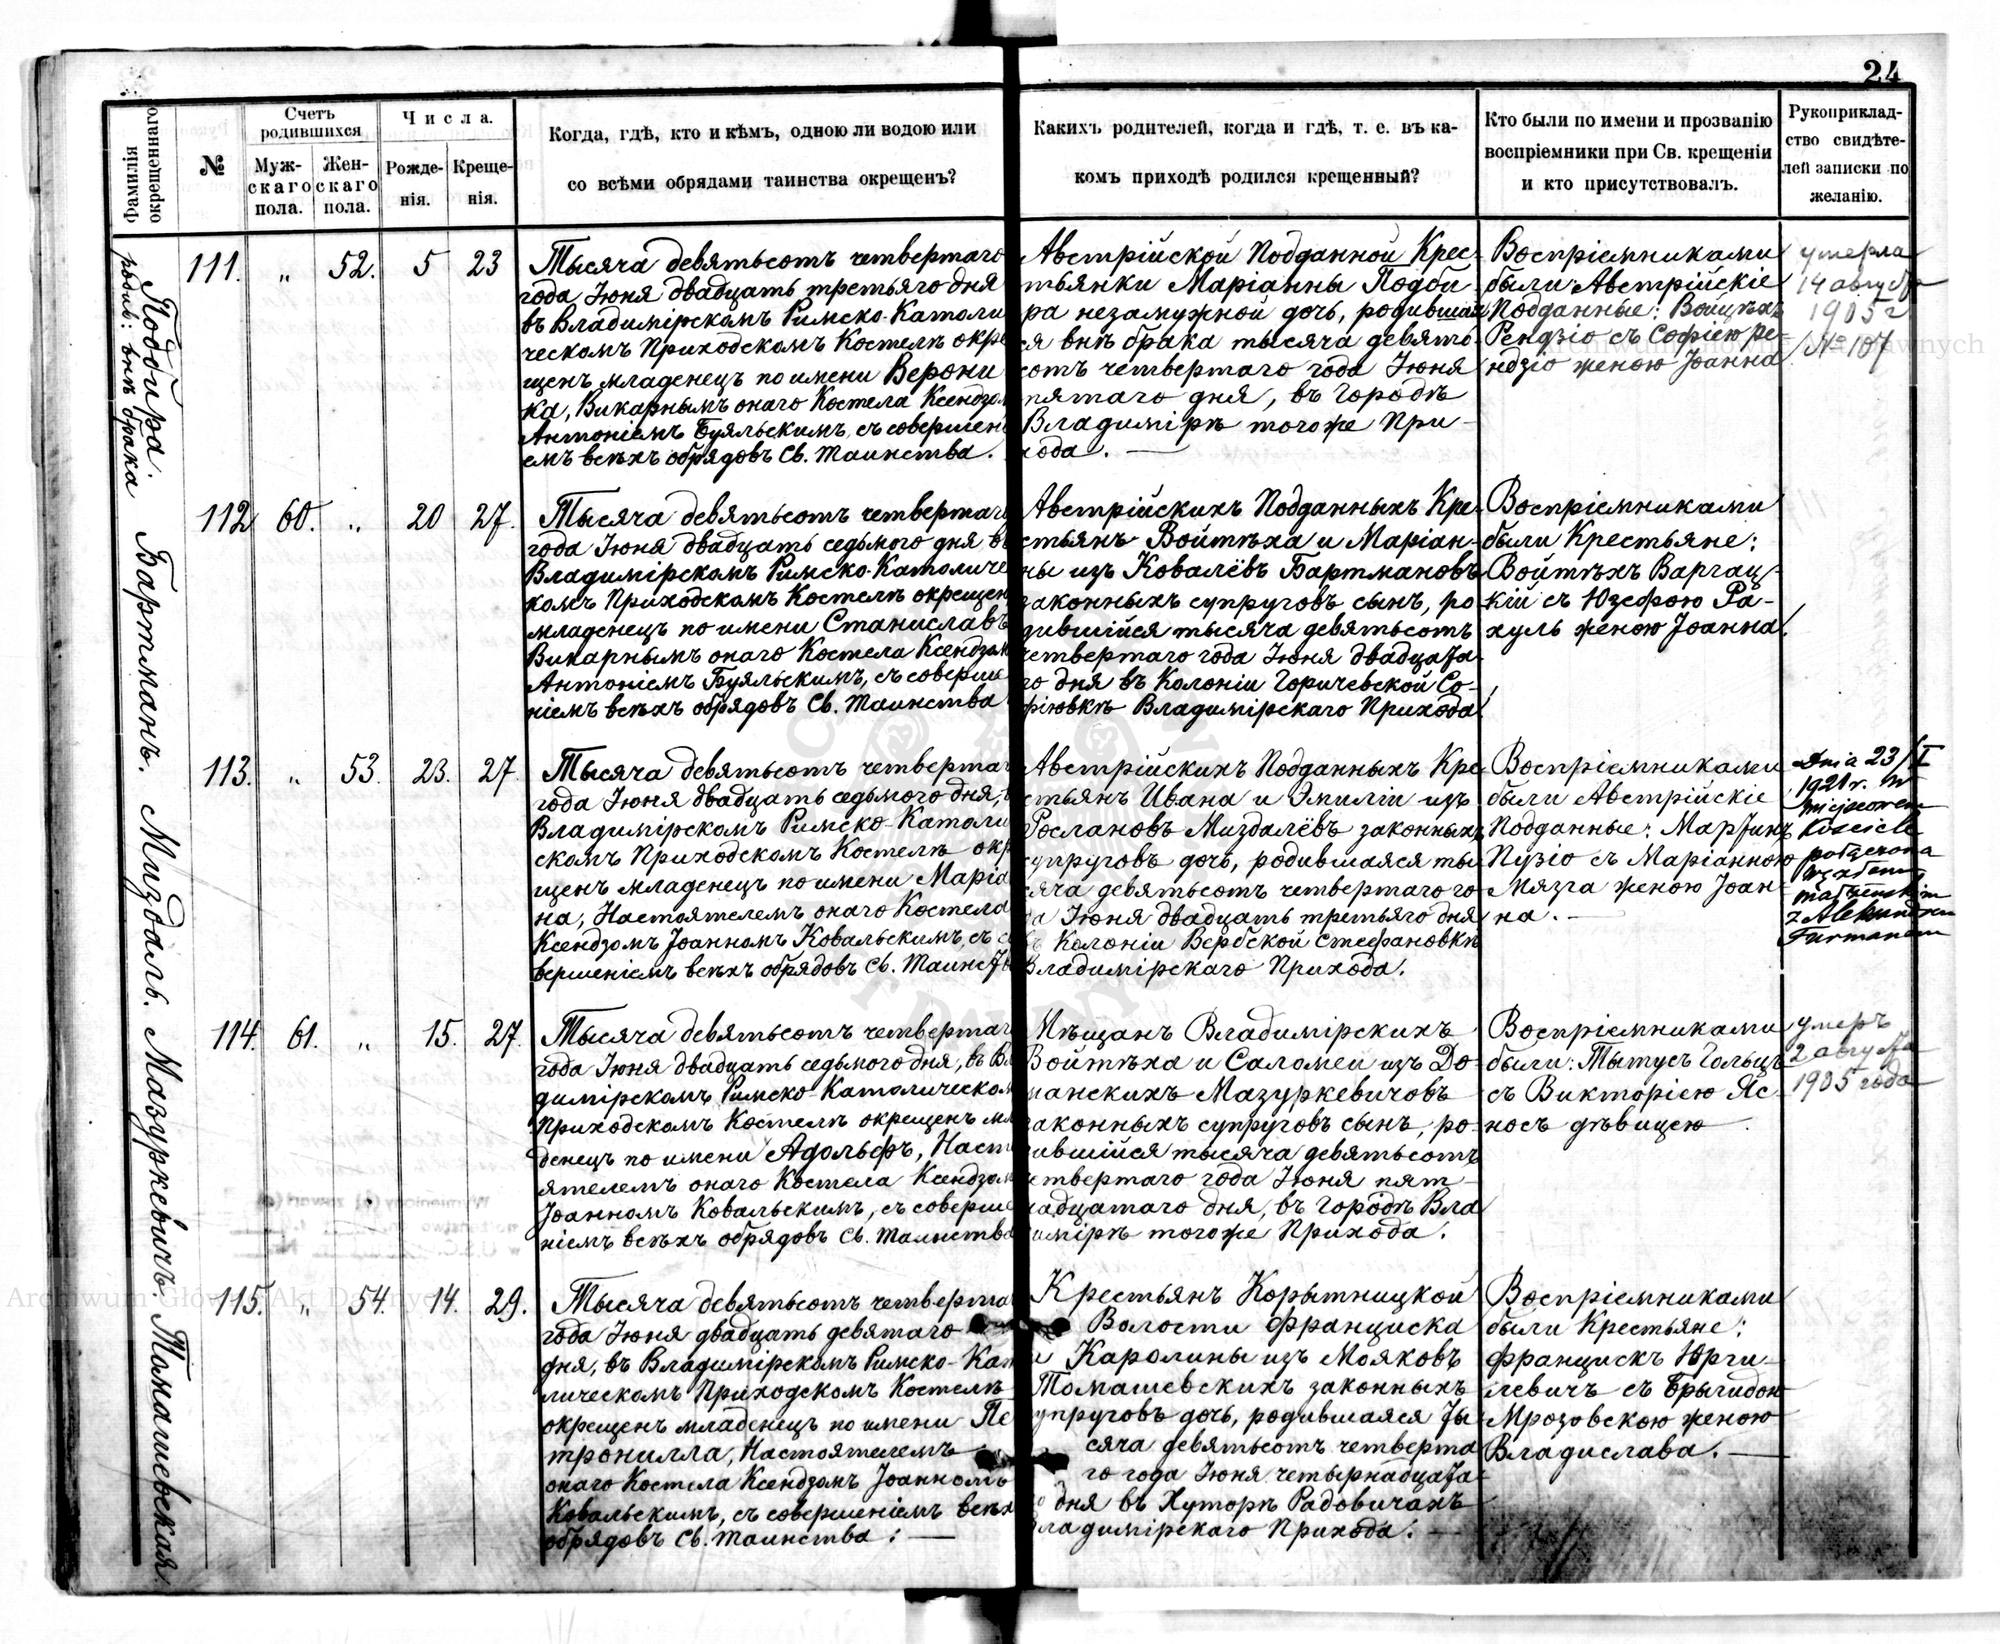 24
Фамилія окрещеннаго
№
Счетъ родившихся
Муж-
скаго
пола.
Жен-
скаго
пола.
Числа.
Рожде-
нія.
Креще-
нія.
Когда, гдѣ, кто и кѣмъ, одною ли водою или
со всѣми обрядами таинства окрещенъ?
Какихъ родителей, когда и гдѣ, т. е. въ ка-
комъ приходѣ родился крещенный?
Кто были по имени и прозванію
воспріемники при Св. крещеніи
и кто присутствовалъ.
Рукоприклад-
ство свидѣте-
лей записки по
желанію.
Подбира.
родив: внѣ брака
111. „ 52. 5 23
Тысяча девятьсотъ четвертаго
года Іюня двадцать третьяго дня
въ Владимірскомъ Римско-Католи
ческомъ Приходскомъ Костелѣ окре
щенъ младенецъ по имени Верони
ка, Викарнымъ онаго Костела Ксендзом
Антоніемъ Буяльскимъ, съ совершені
емъ всѣхъ обрядовъ Св. Таинства.
Австрійской Подданной Крес-
тьянки Маріанны Подби
ра незамужной дочь, родившая
ся внѣ брака тысяча девято
сотъ четвертаго года Іюня
пятаго дня, въ Городѣ
Владимірѣ тогоже При-
хода.
Воспріемниками
были Австрійскіе
Подданные: Войцѣхъ
Рендзіо съ Софіею Ре-
ндзіо женою Іоанна
умерла
14 августа
1905 г
№ 107
Бартманъ.
112 60. „ 20 27.
Тысяча девятьсотъ четвертаго
года Іюня двадцать седьмого дня въ
Владимірскомъ Римско-Католиче
комъ Приходскомъ Костелѣ окрещен
младенецъ по имени Станиславъ
Викарнымъ онаго Костела Ксендзом
Антоніемъ Буяльскимъ, съ соверше
ніемъ всѣхъ обрядовъ Св. Таинства
Австрійскихъ Подданныхъ Кре-
стьянъ Войтѣха и Маріан-
ны изъ Ковалёвъ Бартмановъ
законныхъ супруговъ сынъ, ро-
дившійся тысяча девятьсотъ
четвертаго года Іюня двадцата-
го дня въ Колоніи Горичевской Со-
фіювкѣ Владимірскаго Прихода
Воспріемниками
были Крестьяне:
Войтѣхъ Варгац-
кій съ Юзефою Ра-
хуль женою Іоанна.
Миздаль.
113. „ 53. 23. 27.
Тысяча девятьсотъ четвертаг
года Іюня двадцать седьмого дня, в
Владимірскомъ Римско-Католи
скомъ Приходскомъ Костелѣ окр
щенъ младенецъ по имени Маріа
на, Настоятелемъ онаго Костела
Ксендзомъ Іоанномъ Ковальскимъ, съ со
вершеніемъ всѣхъ обрядовъ Св. Таинст
Австрійскихъ Подданныхъ Кре
стьянъ Ивана и Эмиліи изъ
Рослановъ Миздалёвъ законныхъ
супруговъ дочь, родившаяся ты
сяча девятьсотъ четвертаго го
да Іюня двадцать третьяго дня
въ Колоніи Вербской Стефановкѣ
Владимірскаго Прихода.
Воспріемниками
были Австрійскіе
Подданные: Мартинъ
Пузіо съ Маріанною
Мязга женою Іоан-
на.
Dnia 23/I
1921 r. w
miejscowem
Kościele
połączona
węzłem
małżeńskim
z Aleksandrem
Furmanem
Мазуркевичъ.
114. 61. „ 15. 27.
Тысяча девятьсотъ четвертаг
года Іюня двадцать седьмого дня, въ Вл
димірскомъ Римско-Католическом
Приходскомъ Костелѣ окрещенъ мл
денецъ по имени Адольфъ, Наст
ятелемъ онаго Костела Ксендзом
Іоанномъ Ковальскимъ, съ соверше
ніемъ всѣхъ обрядовъ Св. Таинства
Мѣщанъ Владимірскихъ
Войтѣха и Саломеи изъ До-
манскихъ Мазуркевичовъ
законныхъ супруговъ сынъ, ро-
дившійся тысяча девятьсотъ
четвертаго года Іюня пят-
надцатаго дня, въ Городѣ Вла
димірѣ тогоже Прихода.
Воспріемниками
были: Тытусъ Гольцъ
съ Викторіею Яс-
носъ дѣвицею
умеръ
2 августа
1905 года
Томашевская
115. „ 54. 14. 29.
Тысяча девятьсотъ четверта
года Іюня двадцать девятаго
дня, въ Владимірскомъ Римско-Кат
лическомъ Приходскомъ Костелѣ
окрещенъ младенецъ по имени Пе
тронилла, Настоятелемъ
онаго Костела Ксендзомъ Іоанномъ
Ковальскимъ, съ совершеніемъ всѣх
обрядовъ Св. Таинства.
Крестьянъ Корытницкой
Волости Франциска
и Каролины изъ Мояковъ
Томашевскихъ законныхъ
супруговъ дочь, родившаяся ты
сяча девятьсотъ четверта
го года Іюня четырнадцата
го дня въ Хуторѣ Радовичахъ
Владимірскаго Прихода.
Воспріемниками
были Крестьяне:
Францискъ Юрги-
левичъ съ Брыгидою
Мрозовскою женою
Владислава.
Archiwum Główne Akt Dawnych